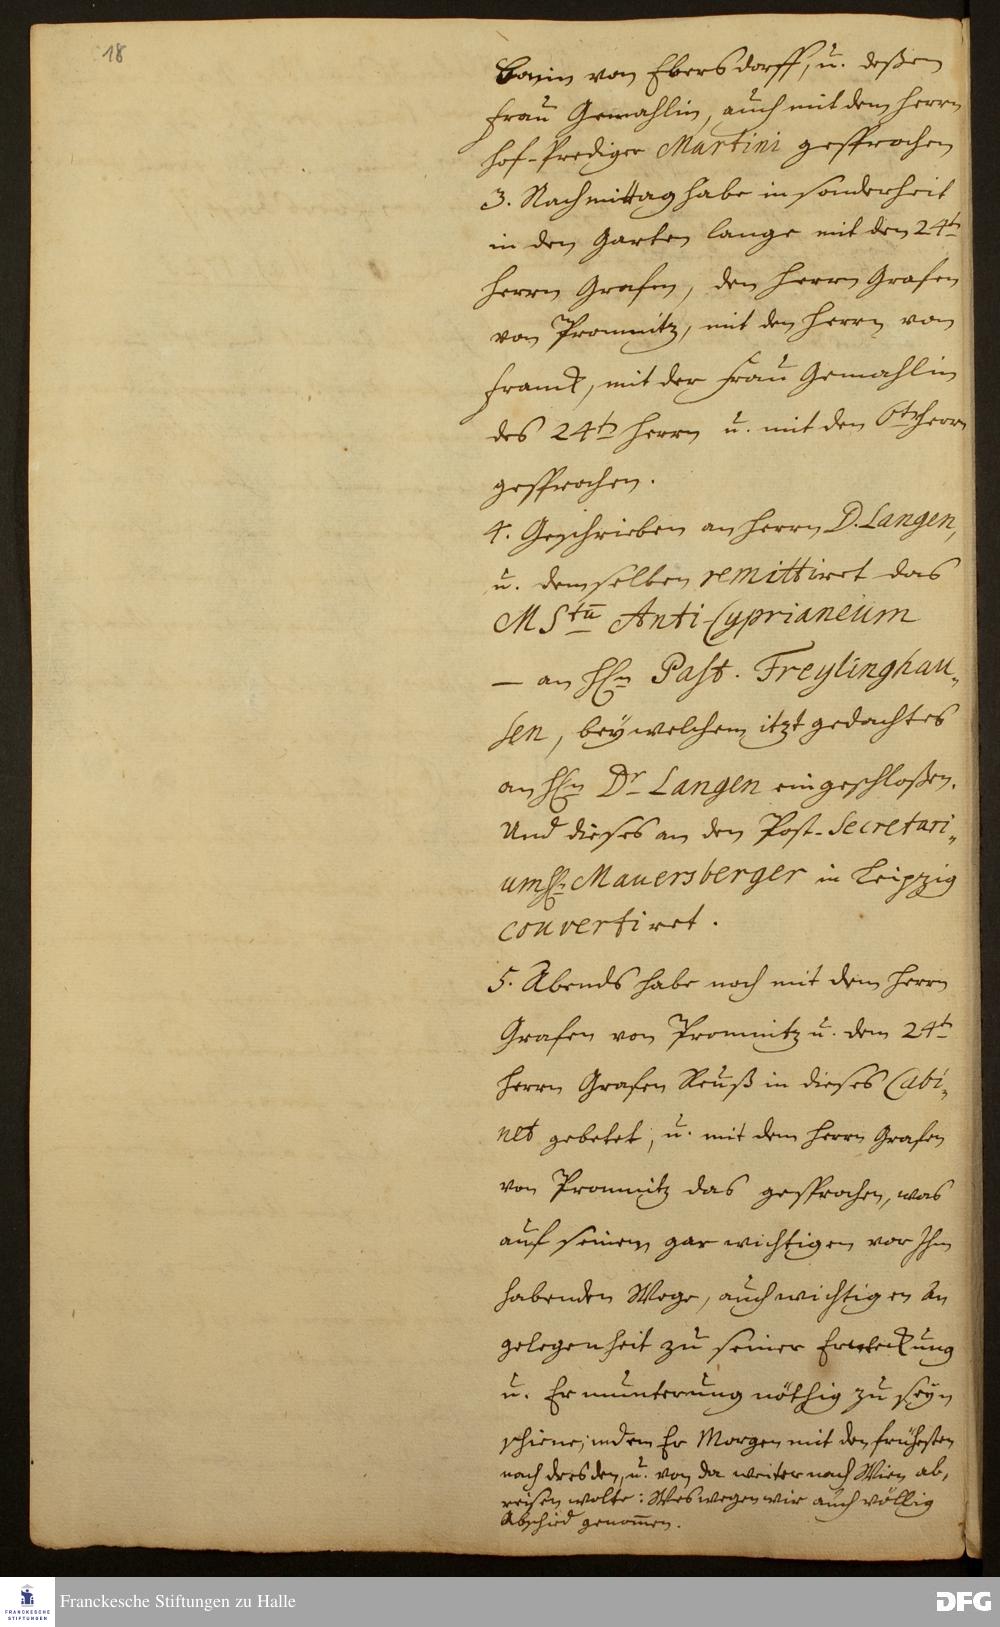 18
Bonin von Ebersdorff, u. deßen
Frau Gemahlin, auch mit dem Herrn
Hof-Prediger Martini gesprochen
3. Nachmittag habe in sonderheit
in den Garten lange mit den 24t
Herrn Grafen, den Herrn Grafen
von Promnitz, mit den Herrn von
Franck, mit der Frau Gemahlin
des 24t Herrn u. mit den 6t Herrn
gesprochen.
4. Geschrieben an Herrn D. Langen,
u. demselben remittiret das
MStũ Anti-Cyprianeum
— an HEn Past. Freylinghau„
sen, bey welchem itzt gedachtes
an HEn Dr Langen eingeschloßen.
Und dieses an den Post-Secretari„
um H. Mauersberger in Leipzig
couvertiret.
5. Abends habe noch mit dem Herrn
Grafen von Promnitz u. dem 24t
Herrn Grafen Reuß in dieses Cabi„
net gebetet, u. mit dem Herrn Grafen
von Promnitz das gesprochen, was
auf seinem gar wichtigen vor Ihm
habenden Wege, auch wichtigen An
gelegenheit zu seiner Erweckung
u. Ermunterung nöthig zu seyn
schiene; indem Er Morgen mit den frühesten
nach Dresden, u. von da weiter nach Wien ab„
reisen wolte: Weswegen wir auch völlig
Abschied genom̄en.
FRANCKESCHE STIFTUNGEN
Franckesche Stiftungen zu Halle
DFG